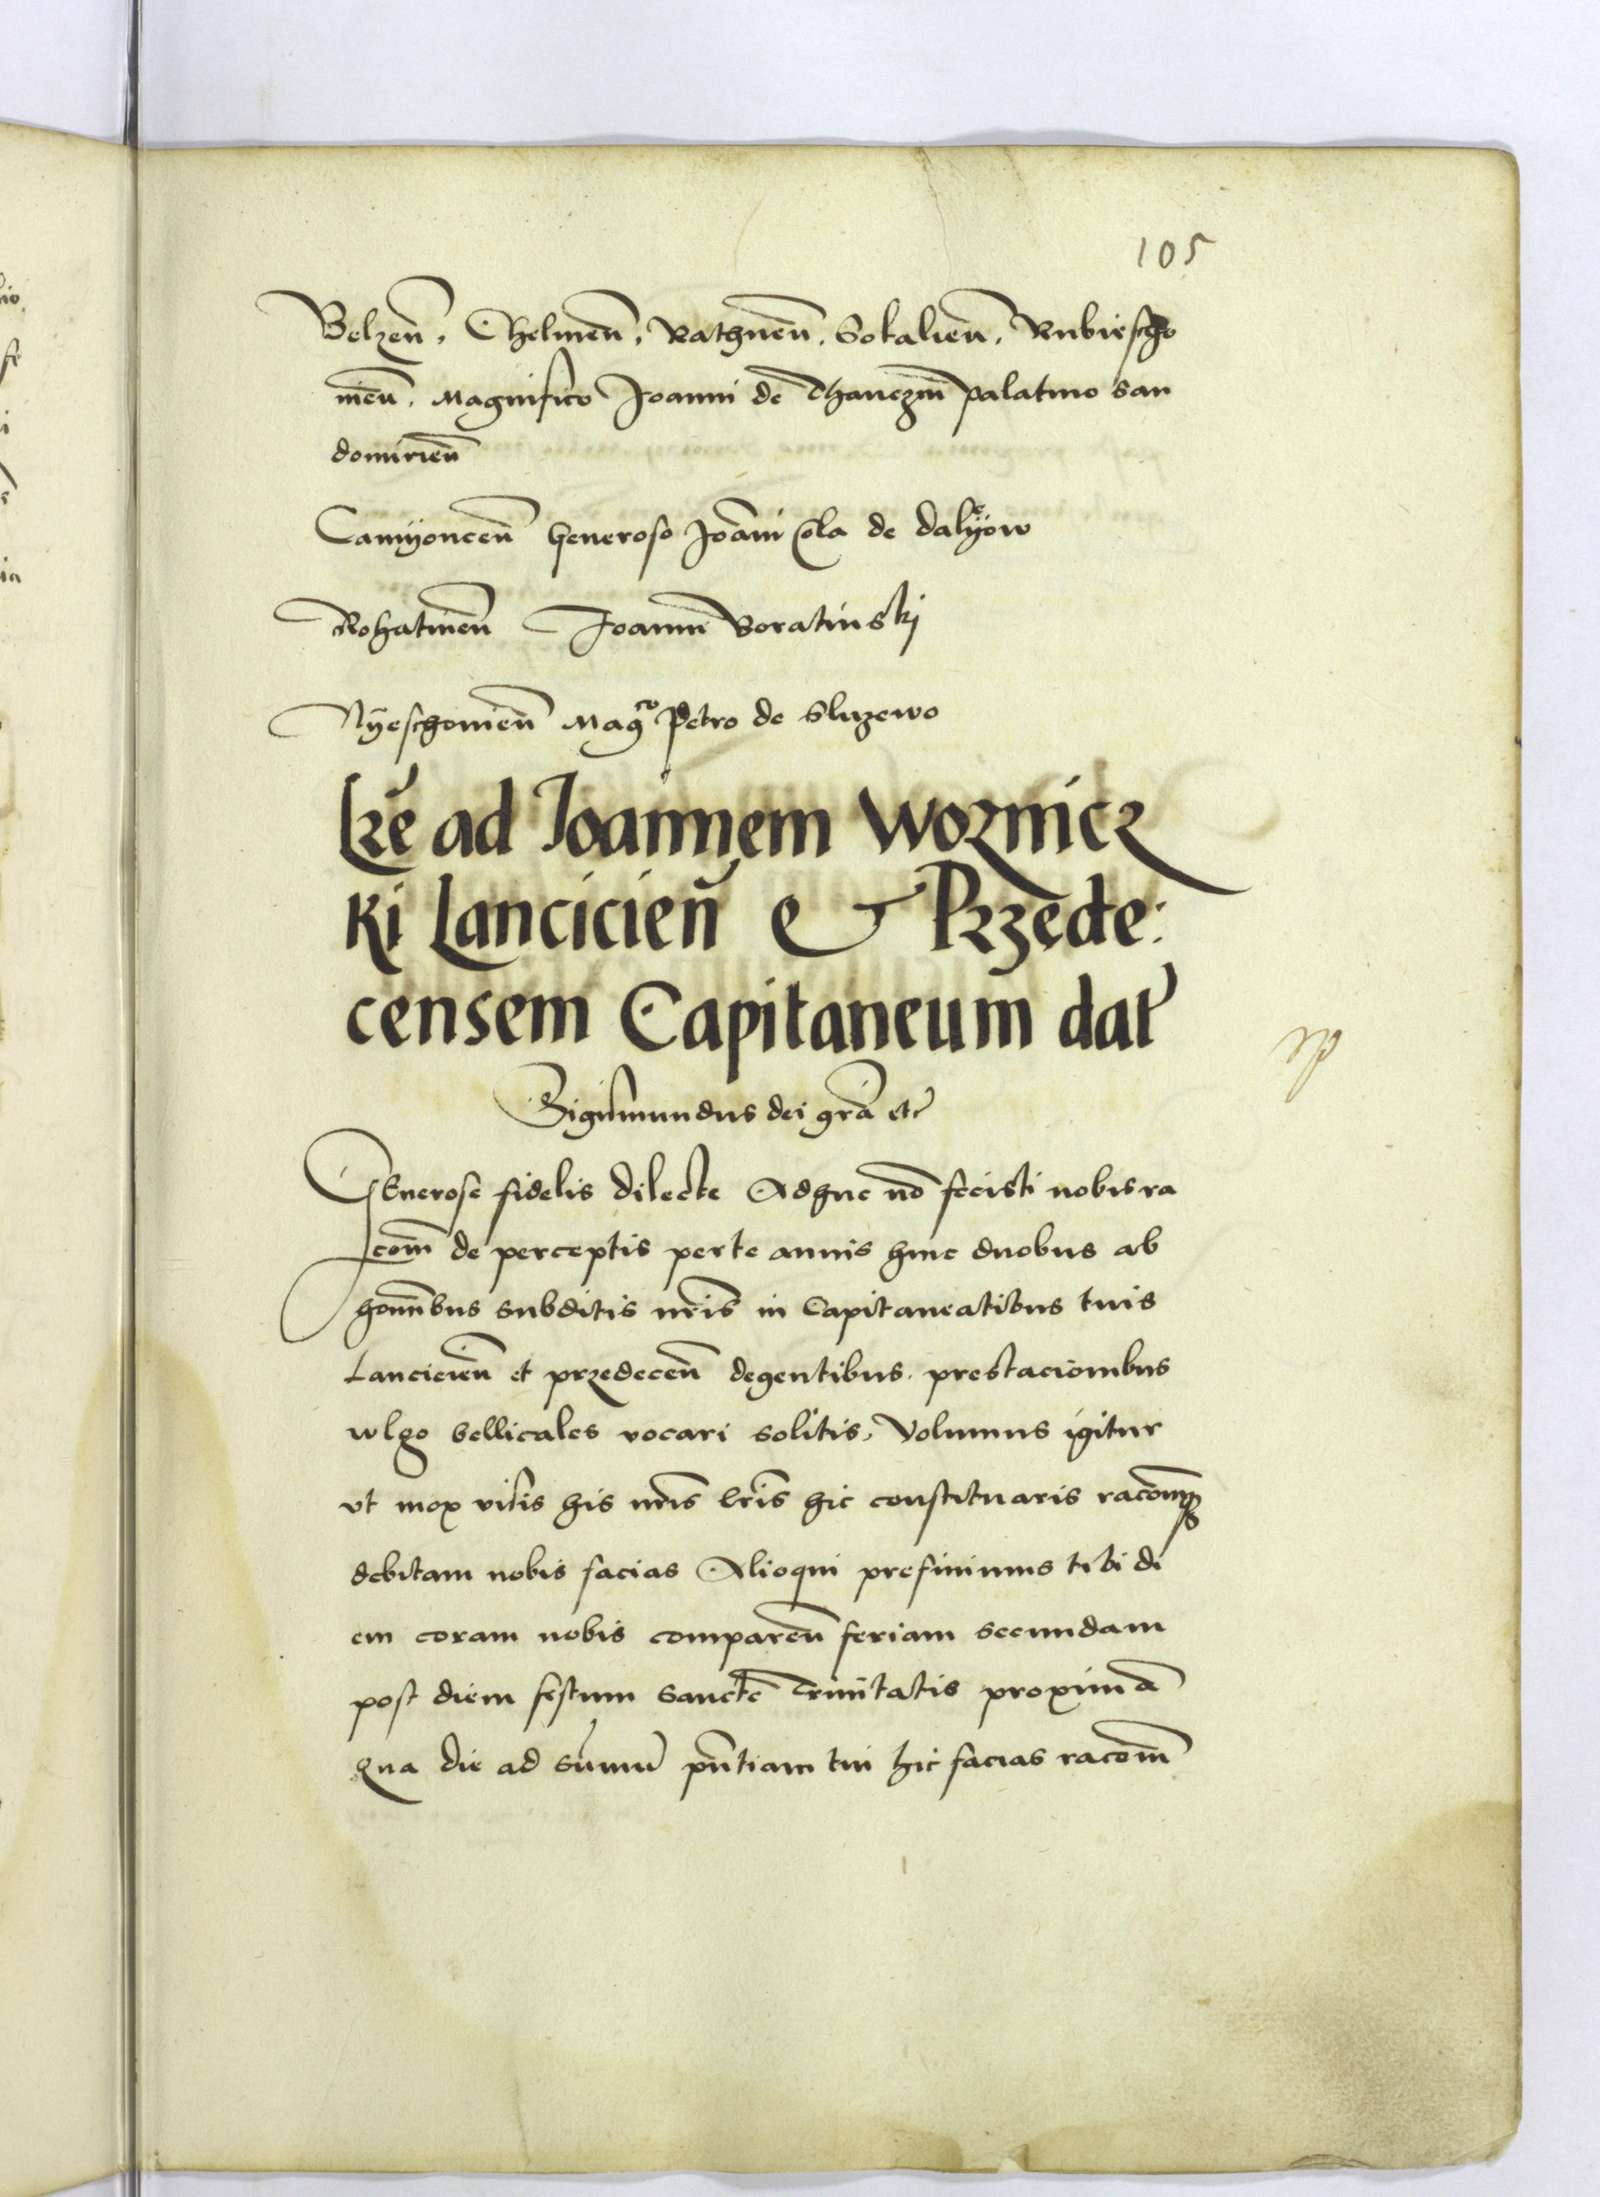 105
Belzen̄, Chelmen̄, Rathnen̄, Sokalien̄, Rubiescho
wien̄, Magnifico Joanni de Thanczin̄ palatino San
domirien̄
Camyoncen̄ Generoso Joāni Cola de dalyeow
Rohatinen̄ Joanni Boratinskj
Nyeschowien̄ Mag^co Petro de Sluzewo
Lrē ad Joannem Woznicz
ki Lancicien̄ et Przede:
censem Capitaneum dat
Sigismundus dei grā etc
GEnerose fidelis dilecte Adhuc nō fecisti nobis ra
cōm de perceptis per te annis hinc duobus ab
hom̄ibus subditis nr̄is in Capitaneatibus tuis
Lancicien̄ et przedecen̄ degentibus prestacionibus
wlgo bellicales vocari solitis, Volumus igitur
vt mox visis his nr̄is lr̄is hic constituaris racōmq3
debitam nobis facias Alioqui prefinimus tibi di
em coram nobis comparen̄ feriam secundam
post diem festum Sancte Trinitatis proximā
qua die ad summū pn̄tiam tui hic facias racōm